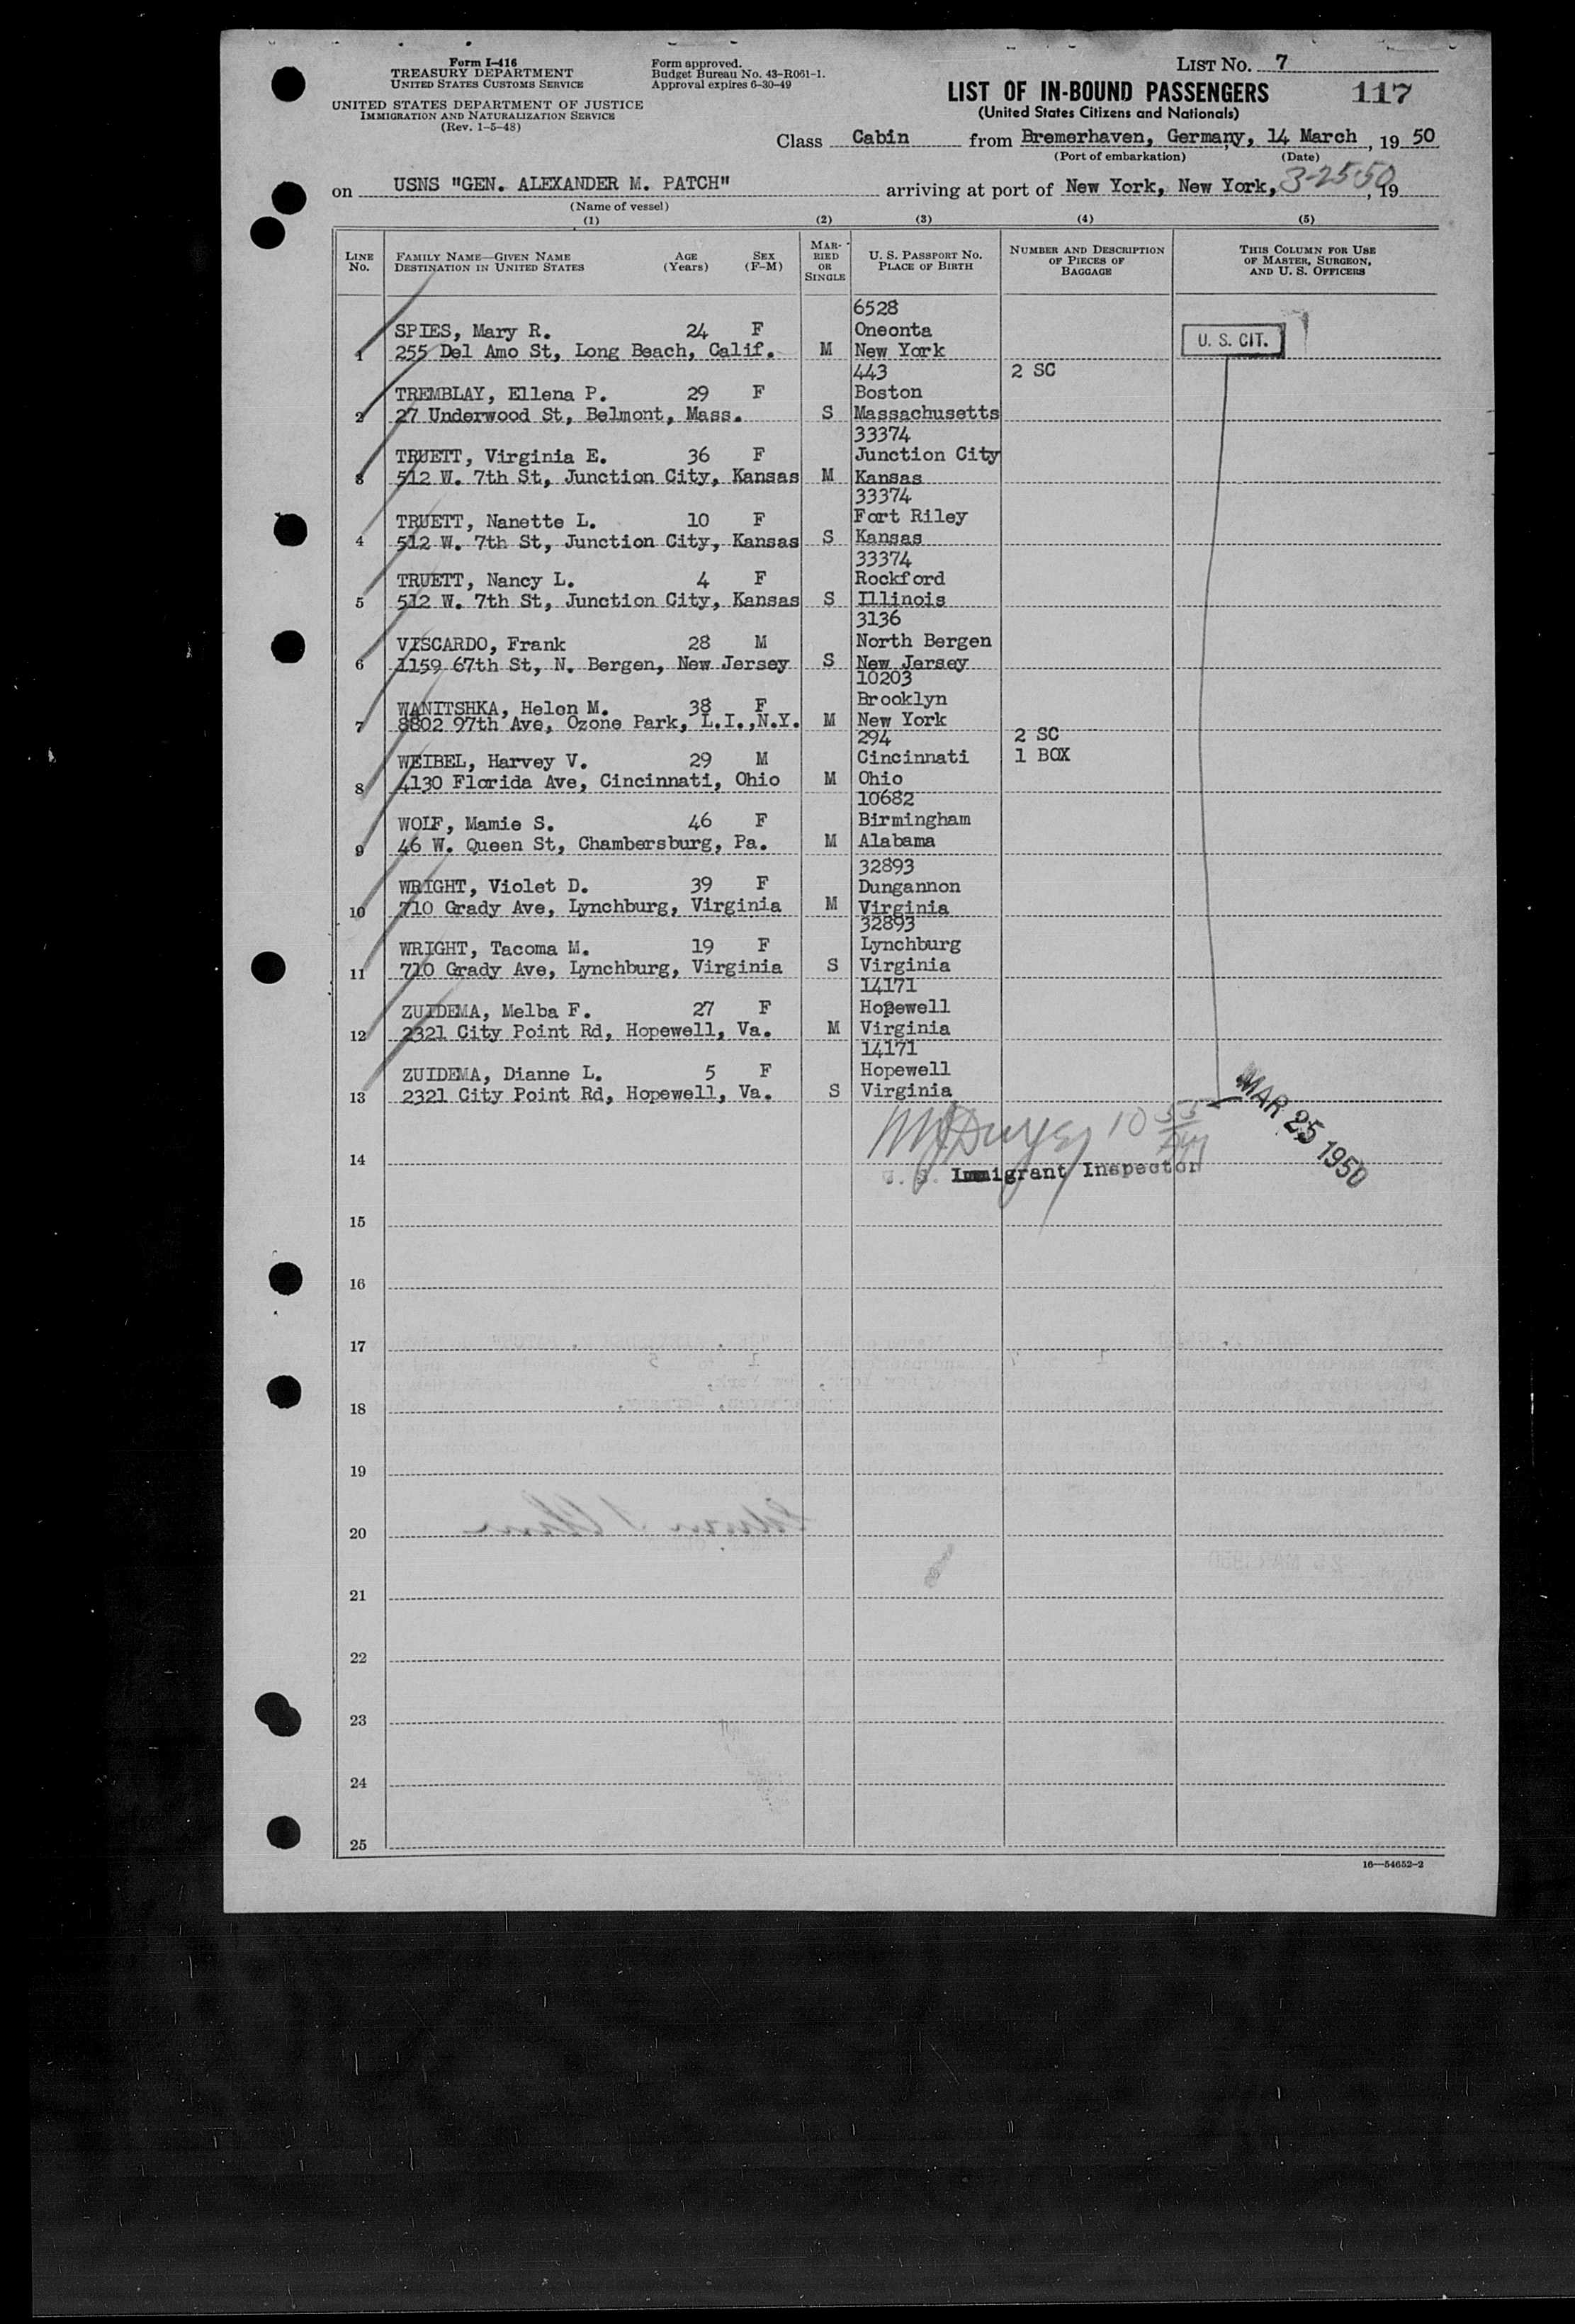 Form I-416
TREASURY DEPARTMENT
UNITED STATES CUSTOMS SERVICE
UNITED STATES DEPARTMENT OF JUSTICE
IMMIGRATION AND NATURALIZATION SERVICE
(Rev. 1-5-48)
Form approved.
Budget Bureau No. 43-R061-1.
Approval expires 6-30-49
LIST NO. 7
LIST OF IN-BOUND PASSENGERS 117
(United States Citizens and Nationals)
Class Cabin from Bremerhaven, Germany, 14 March, 19 50
(Port of embarkation) (Date)
on USNS "GEN. ALEXANDER M. PATCH" arriving at port of New York, New York, 3-25-50, 19
(Name of vessel)
(1) (2) (3) (4) (5)
LINE NO.
FAMILY NAME—GIVEN NAME AGE (Years) SEX (F-M)
DESTINATION IN UNITED STATES
MARRIED OR SINGLE
U. S. PASSPORT NO.
PLACE OF BIRTH
NUMBER AND DESCRIPTION OF PIECES OF BAGGAGE
THIS COLUMN FOR USE OF MASTER, SURGEON, AND U. S. OFFICERS
6528
SPIES, Mary R. 24 F Oneonta U. S. CIT.
1 255 Del Amo St, Long Beach, Calif. M New York
443 2 SC
TREMBLAY, Ellena P. 29 F Boston
2 27 Underwood St, Belmont, Mass. S Massachusetts
33374
TRUETT, Virginia E. 36 F Junction City
3 512 W. 7th St, Junction City, Kansas M Kansas
33374
TRUETT, Nanette L. 10 F Fort Riley
4 512 W. 7th St, Junction City, Kansas S Kansas
33374
TRUETT, Nancy L. 4 F Rockford
5 512 W. 7th St, Junction City, Kansas S Illinois
3136
VISCARDO, Frank 28 M North Bergen
6 1159 67th St, N. Bergen, New Jersey S New Jersey
10203
WANITSHKA, Helen M. 38 F Brooklyn
7 8802 97th Ave, Ozone Park, L.I.,N.Y. M New York
294 2 SC
WEIBEL, Harvey V. 29 M Cincinnati 1 BOX
8 4130 Florida Ave, Cincinnati, Ohio M Ohio
10682
WOLF, Mamie S. 46 F Birmingham
9 46 W. Queen St, Chambersburg, Pa. M Alabama
32893
WRIGHT, Violet D. 39 F Dungannon
10 710 Grady Ave, Lynchburg, Virginia M Virginia
32893
WRIGHT, Tacoma M. 19 F Lynchburg
11 710 Grady Ave, Lynchburg, Virginia S Virginia
14171
ZUIDEMA, Melba F. 27 F Hopewell
12 2321 City Point Rd, Hopewell, Va. M Virginia
14171
ZUIDEMA, Dianne L. 5 F Hopewell
13 2321 City Point Rd, Hopewell, Va. S Virginia
MAR 25 1950
14
U. S. Immigrant Inspector
15
16
17
18
19
20
21
22
23
24
25
16—54652-2